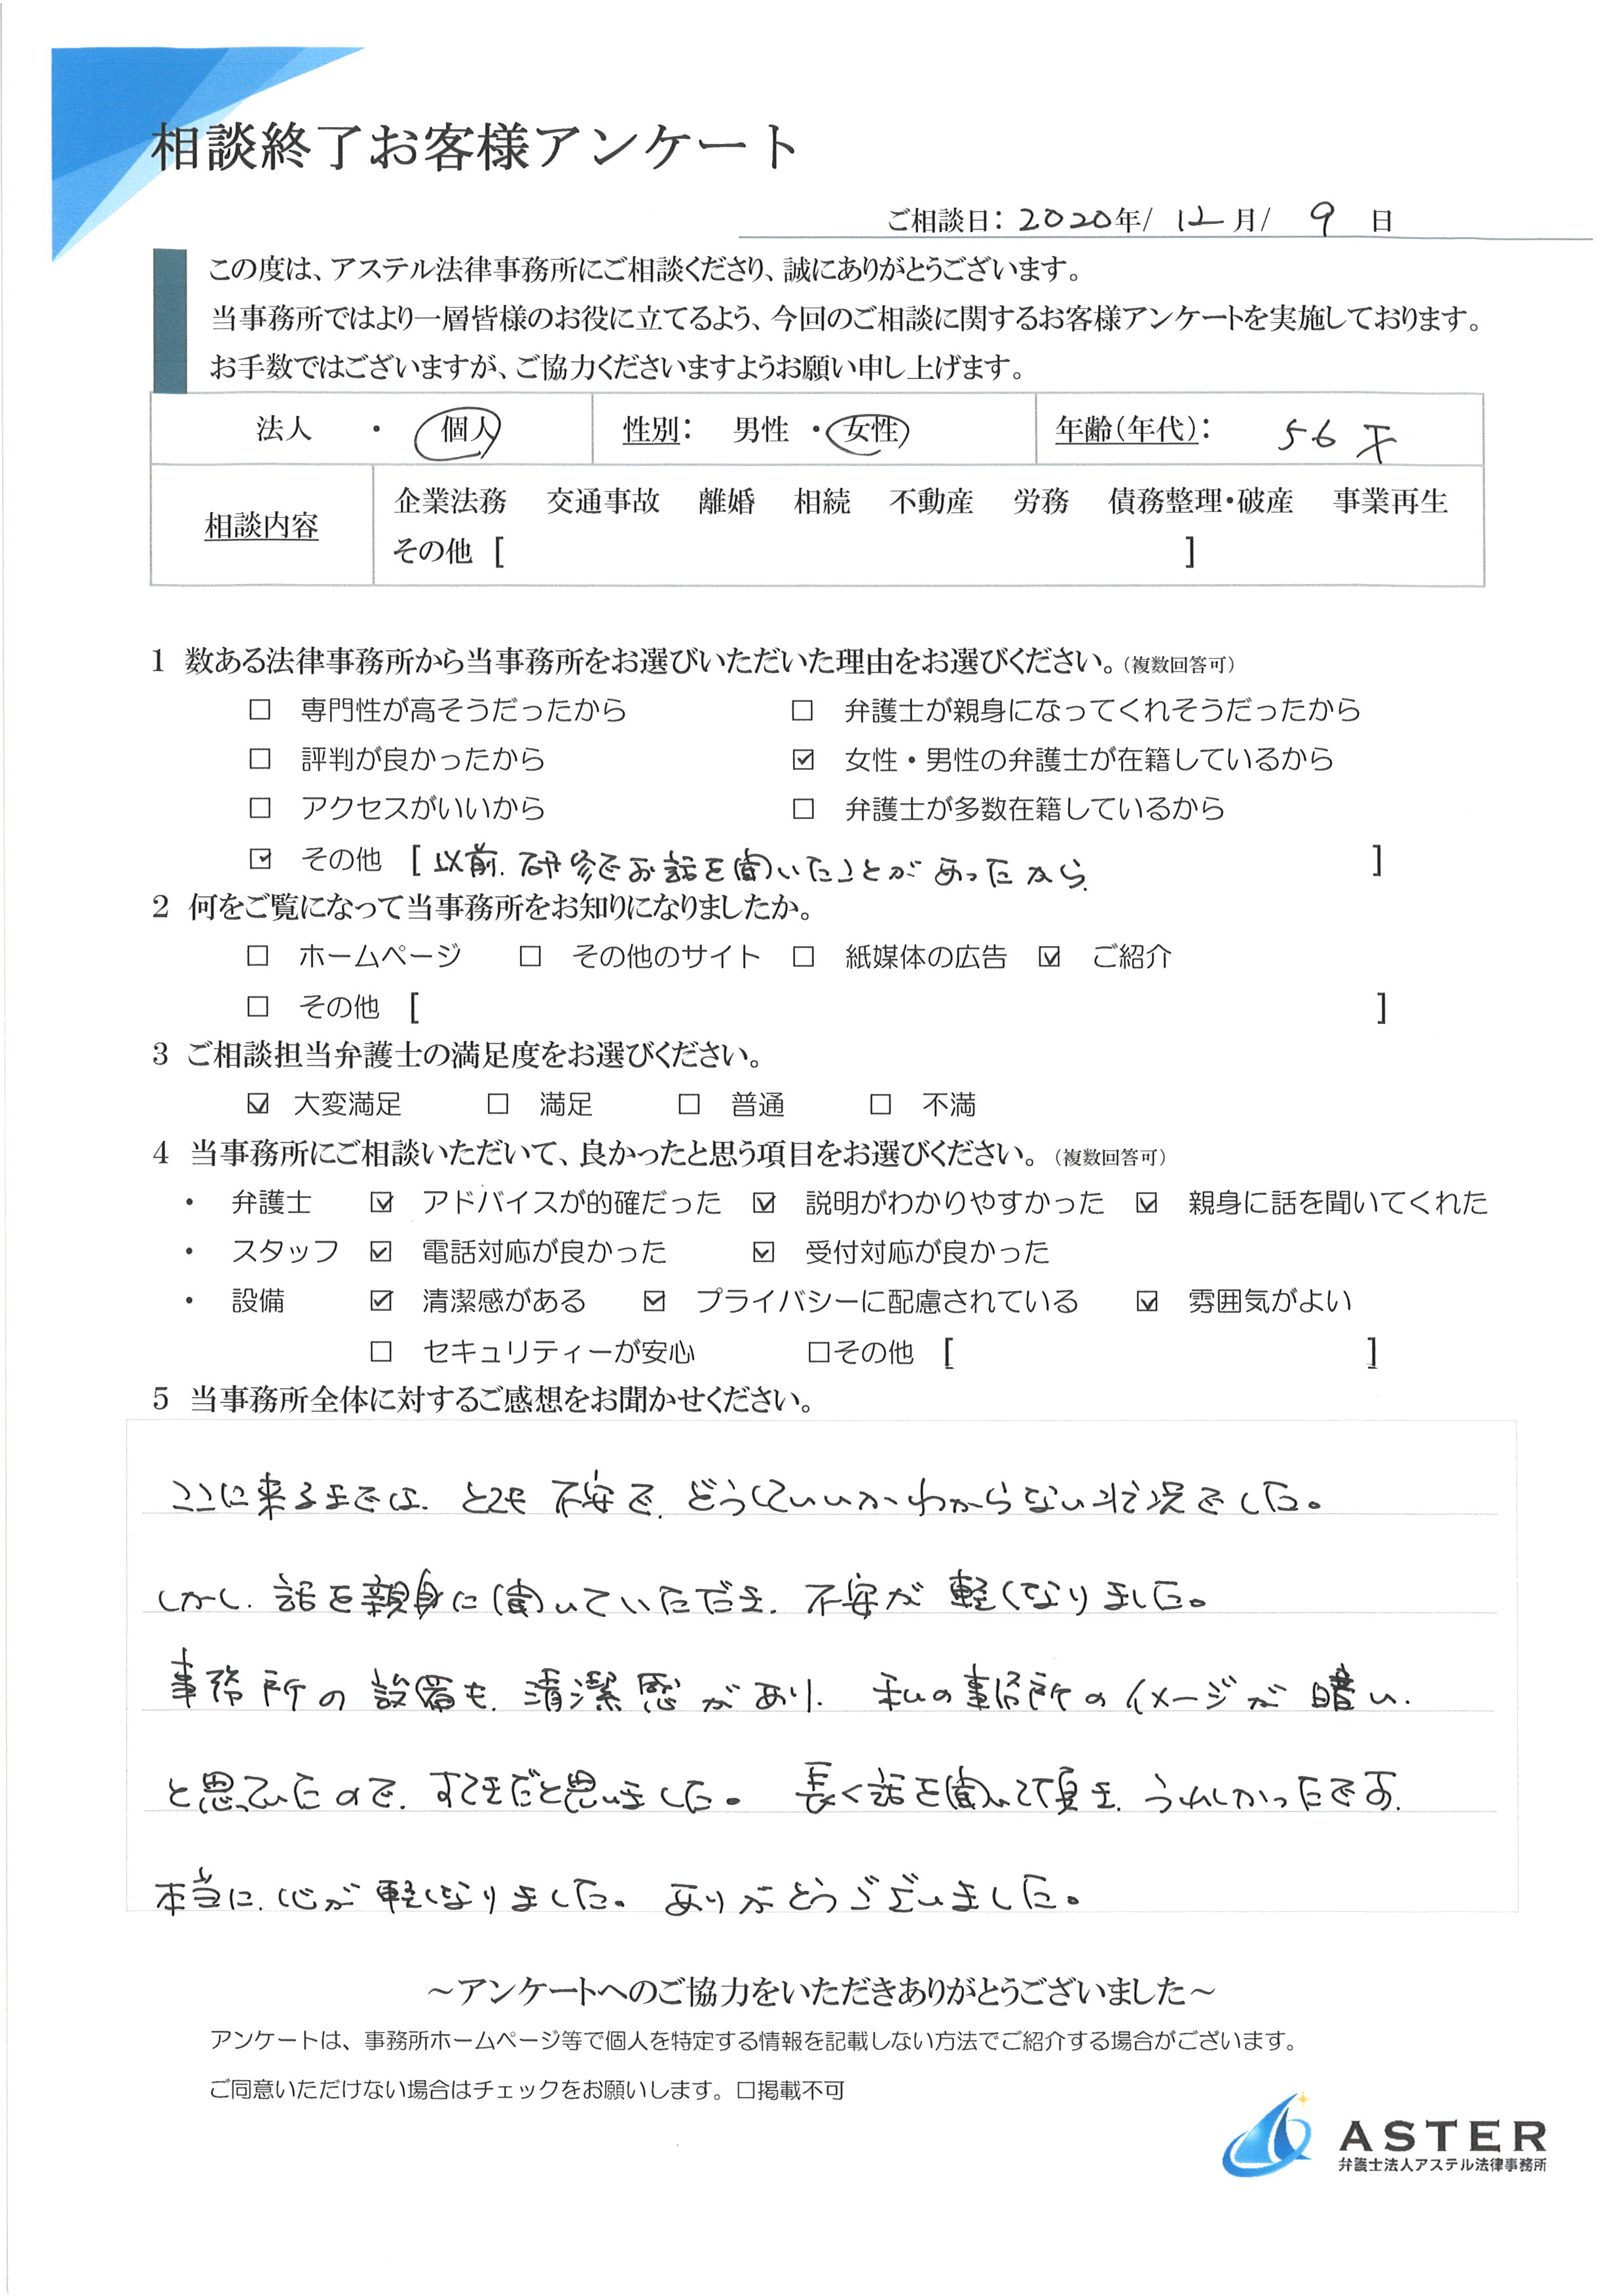 相談終了お客様アンケート
ご相談日：2020年/ 12月/ 9日
この度は、アステル法律事務所にご相談くださり、誠にありがとうございます。
当事務所ではより一層皆様のお役に立てるよう、今回のご相談に関するお客様アンケートを実施しております。
お手数ではございますが、ご協力くださいますようお願い申し上げます。
法人 ・ 個人 性別： 男性 ・ 女性 年齢（年代）： 56才
相談内容
企業法務 交通事故 離婚 相続 不動産 労務 債務整理・破産 事業再生
その他 [ ]
1 数ある法律事務所から当事務所をお選びいただいた理由をお選びください。（複数回答可）
□ 専門性が高そうだったから □ 弁護士が親身になってくれそうだったから
□ 評判が良かったから ☑ 女性・男性の弁護士が在籍しているから
□ アクセスがいいから □ 弁護士が多数在籍しているから
☑ その他 [以前、研修でお話を聞いたことがあったから ]
2 何をご覧になって当事務所をお知りになりましたか。
□ ホームページ □ その他のサイト □ 紙媒体の広告 ☑ ご紹介
□ その他 [ ]
3 ご相談担当弁護士の満足度をお選びください。
☑ 大変満足 □ 満足 □ 普通 □ 不満
4 当事務所にご相談いただいて、良かったと思う項目をお選びください。（複数回答可）
・ 弁護士 ☑ アドバイスが的確だった ☑ 説明がわかりやすかった ☑ 親身に話を聞いてくれた
・ スタッフ ☑ 電話対応が良かった ☑ 受付対応が良かった
・ 設備 ☑ 清潔感がある ☑ プライバシーに配慮されている ☑ 雰囲気がよい
□ セキュリティーが安心 □その他 [ ]
5 当事務所全体に対するご感想をお聞かせください。
ここに来るまでは、とても不安で、どうしていいかわからない状況でした。
しかし、話を親身に聞いていただき、不安が軽くなりました。
事務所の設備も、清潔感があり、私の事務所のイメージが暗い、
と思っていたので、すてきだと思いました。 長く話を聞いて頂き、うれしかったです。
本当に、心が軽くなりました。ありがとうございました。
～アンケートへのご協力をいただきありがとうございました～
アンケートは、事務所ホームページ等で個人を特定する情報を記載しない方法でご紹介する場合がございます。
ご同意いただけない場合はチェックをお願いします。□掲載不可
ASTER
弁護士法人アステル法律事務所